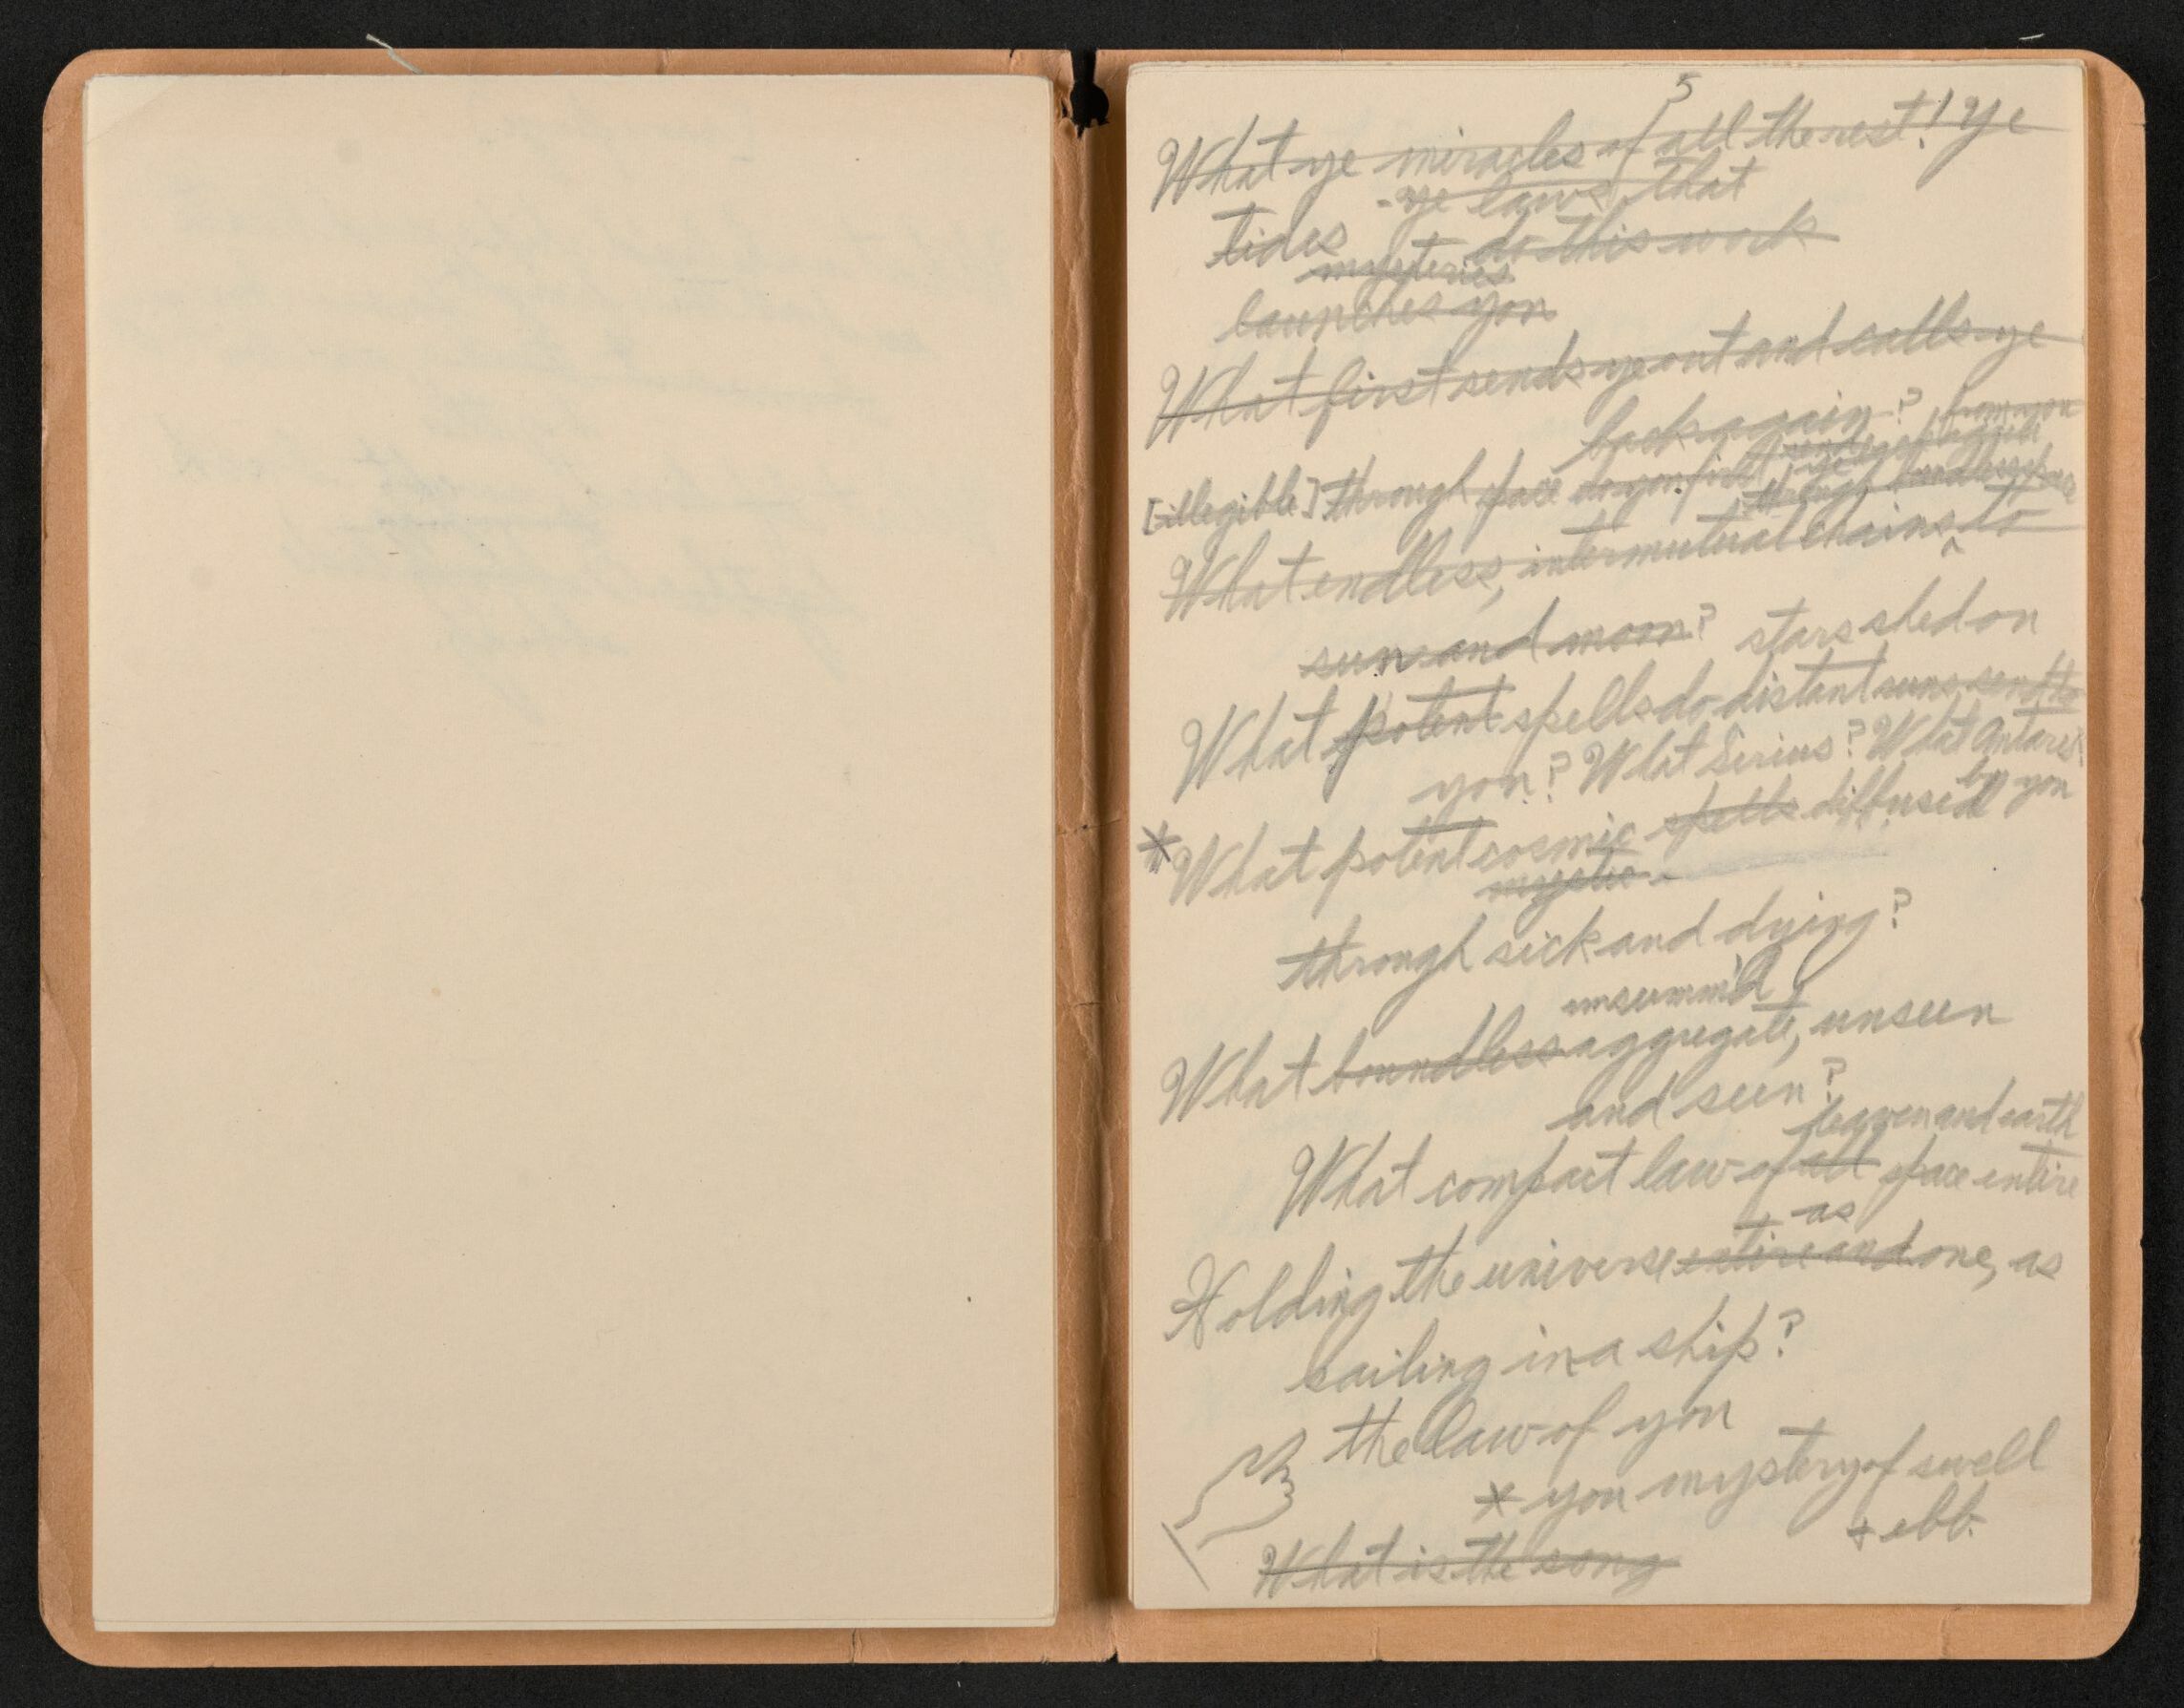 5
What ye miracles of all the rest! Ye
- ye laws, that
tides do this work
mysteries
launches you
What first sends ye out and calls ye
back again? from you
[illegible] through space do you
through boundless space
What endless, intermutual chains, to
sun and moon? stars shed on
What potent spells do distant suns send to
you? What Sirius? What Antares?
by you
* What potent cosmic spells diffused
mystic -
through sick and dying?
unsumm'd
What boundless aggregate, unseen
and seen?
heaven and earth
What compact law of all space entire
as
Holding the universe entire and one, as
sailing in a ship?
the law of you
* you mystery of swell
+ ebb.
What is the song